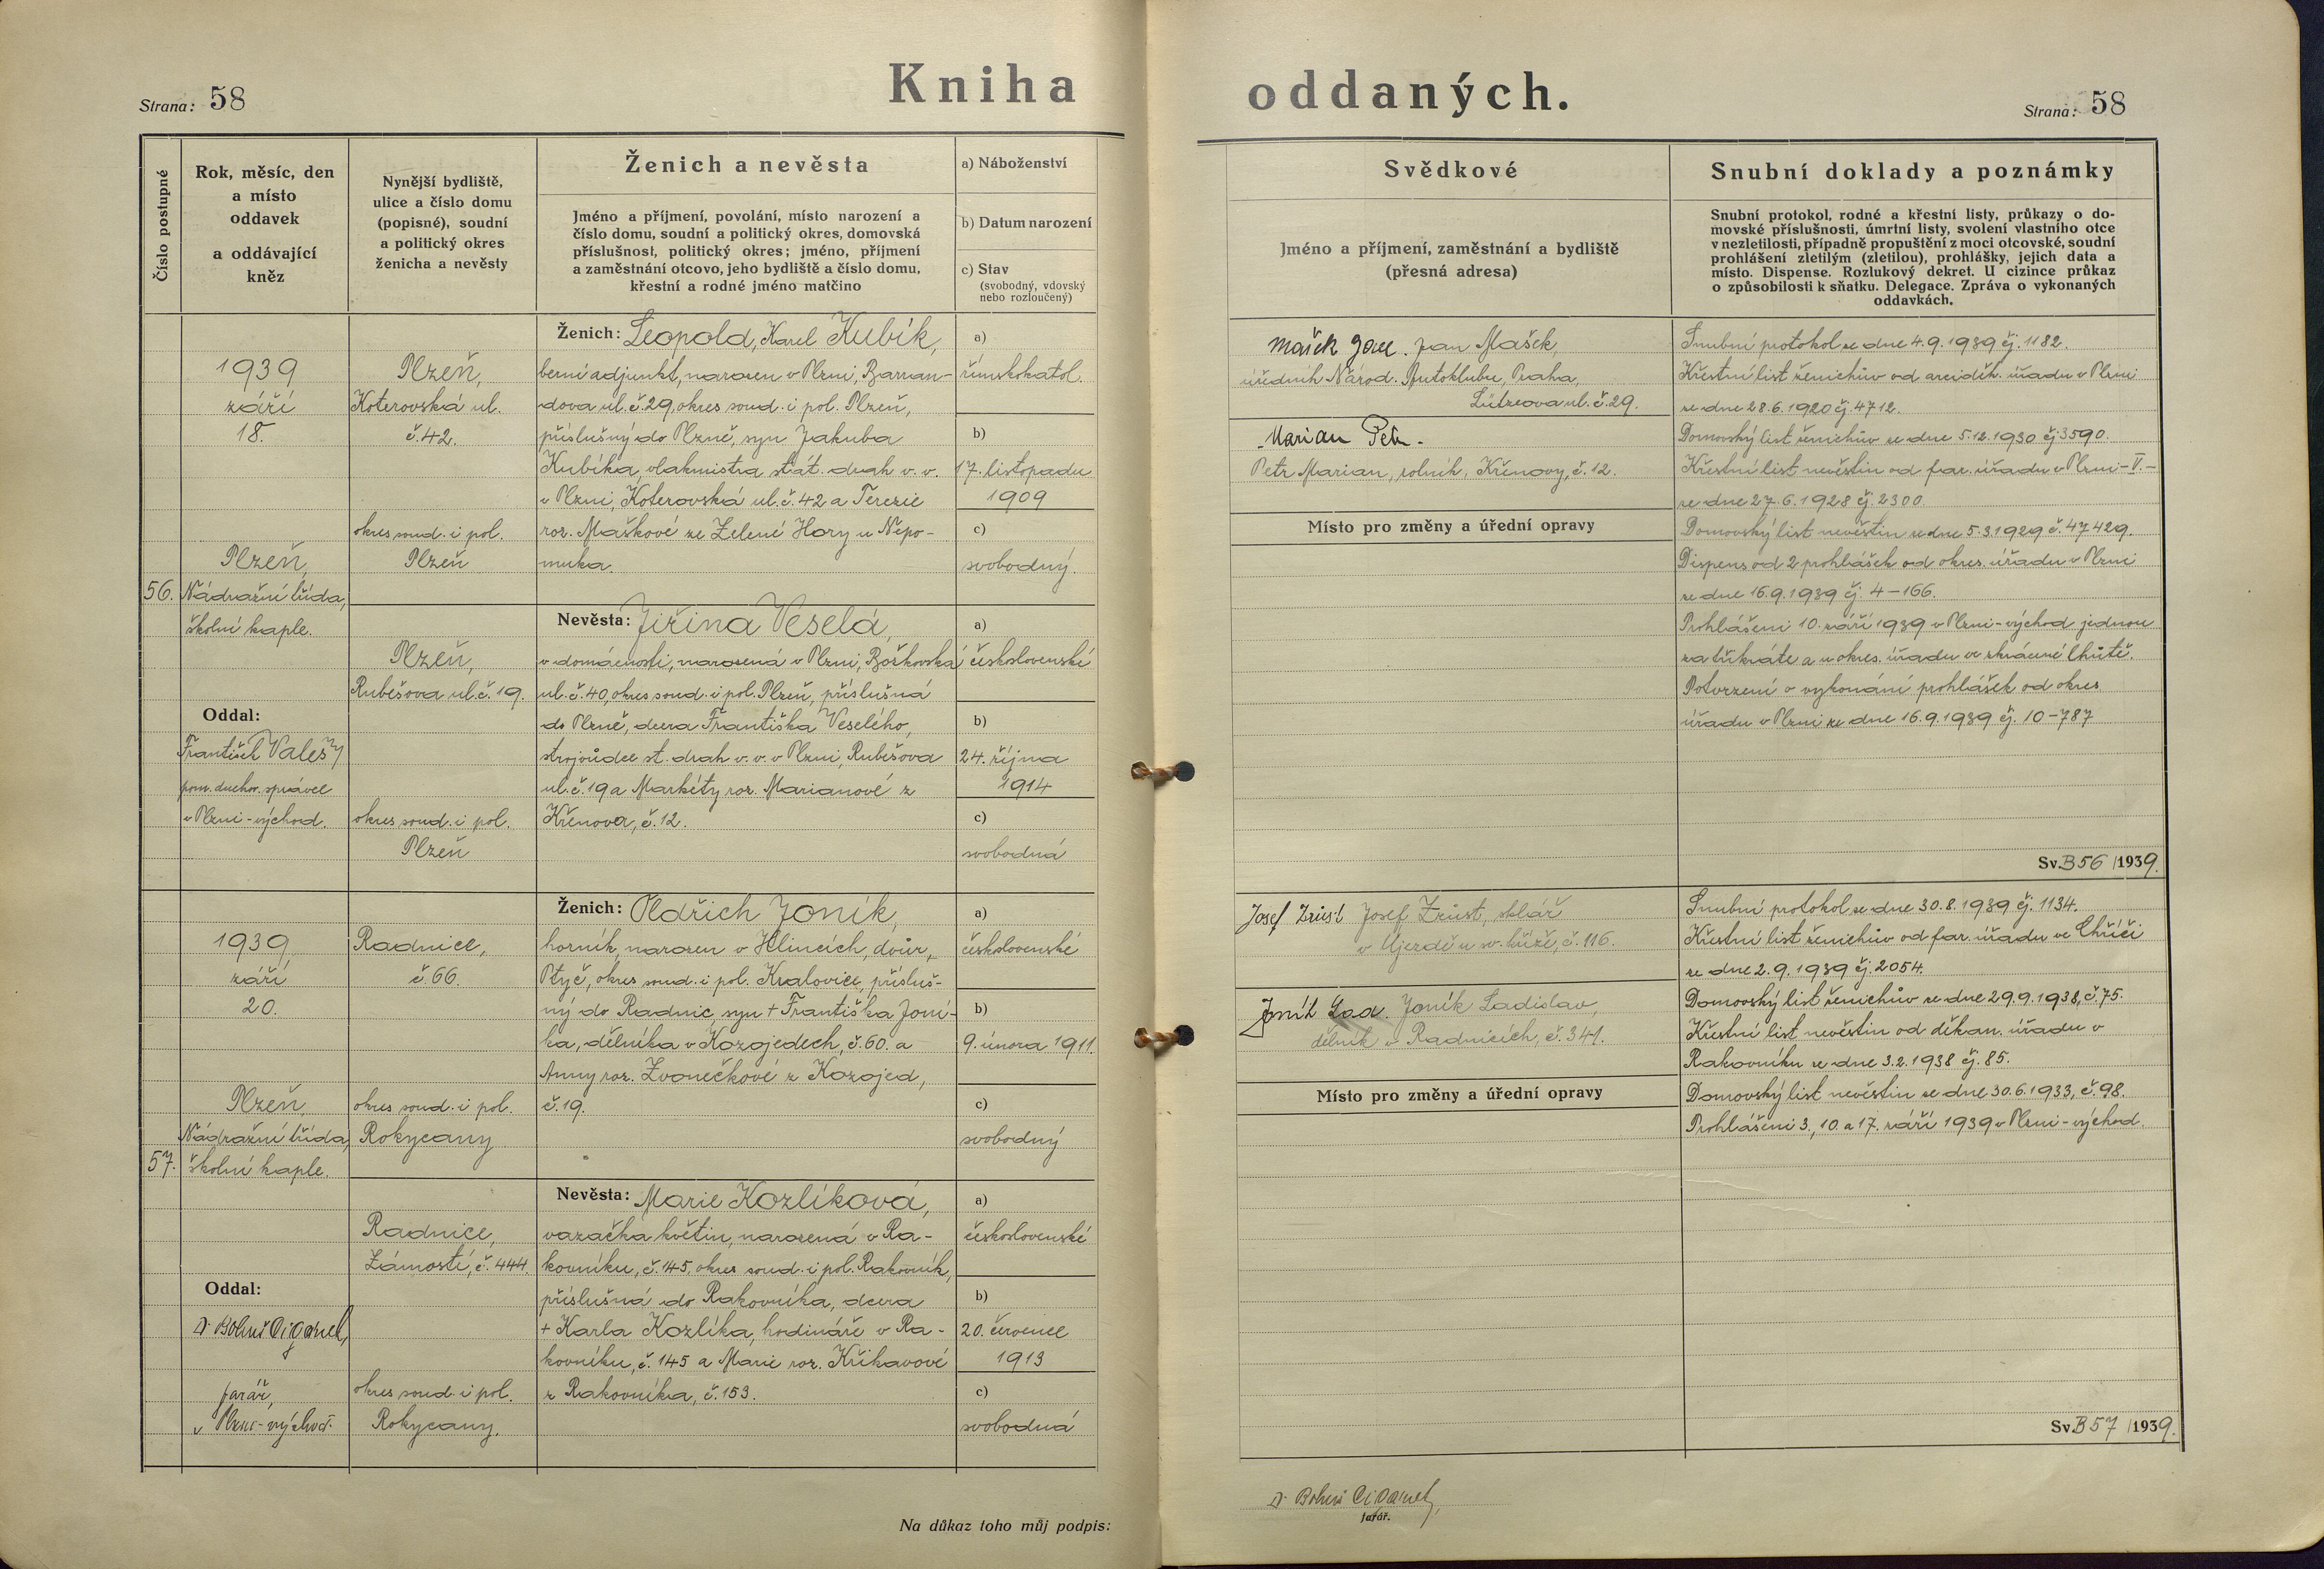 Strana: 58
Kniha
oddaných.
Strana: 58
Číslo postupné
Rok, měsíc, den
a místo
oddavek
a oddávající
kněz
Nynější bydliště,
ulice a číslo domu
(popisné), soudní
a politický okres
ženicha a nevěsty
Ženich a nevěsta
Jméno a příjmení, povolání, místo narození a
číslo domu, soudní a politický okres, domovská
příslušnost, politický okres; jméno, příjmení
a zaměstnání otcovo, jeho bydliště a číslo domu,
křestní a rodné jméno matčino
a) Náboženství
b) Datum narození
c) Stav
(svobodný, vdovský
nebo rozloučený)
Svědkové
Jméno a příjmení, zaměstnání a bydliště
(přesná adresa)
Snubní doklady a poznámky
Snubní protokol, rodné a křestní listy, průkazy o do-
movské příslušnosti, úmrtní listy, svolení vlastního otce
v nezletilosti, případně propuštění z moci otcovské, soudní
prohlášení zletilým (zletilou), prohlášky, jejich data a
místo. Dispense. Rozlukový dekret. U cizince průkaz
o způsobilosti k sňatku. Delegace. Zpráva o vykonaných
oddavkách.
56.
1939
září
18.
Plzeň,
Nádražní třída,
školní kaple.
Oddal:
František Valeš
pom. duchov. správce
v Plzni-východ.
Plzeň,
Koterovská ul.
č. 42.
okres soud. i pol.
Plzeň
Plzeň,
Rubešova ul. č. 19.
okres soud. i pol.
Plzeň
Ženich: Leopold, Karel Kubík,
berní adjunkt, narozen v Plzni, Barran-
dova ul. č. 29, okres soud. i pol. Plzeň,
příslušný do Plzně, syn Jakuba
Kubíka, vlakmistra stát. drah v. v.
v Plzni, Koterovská ul. č. 42 a Terezie
roz. Maškové ze Zelené Hory u Nepo-
muka.
Nevěsta: Jiřina Veselá,
v domácnosti, narozená v Plzni, Božkovská
ul. č. 40, okres soud. i pol. Plzeň, příslušná
do Plzně, dcera Františka Veselého,
strojvůdce st. drah v. v. v Plzni, Rubešova
ul. č. 19 a Markéty roz. Marianové z
Křenova, č. 12.
a)
římskokatol.
b)
17. listopadu
1909
c)
svobodný.
a)
československé
b)
24. října
1914
c)
svobodná
Mašek Jan. Jan Mašek,
úředník Národ. Autoklubu, Praha,
Lützova ul. č. 29.
Marian Petr.
Petr Marian, rolník, Křenovy, č. 12.
Místo pro změny a úřední opravy
Snubní protokol ze dne 4. 9. 1939 čj. 1182.
Křestní list ženichův od arciděk. úřadu v Plzni
ze dne 28. 6. 1920 čj. 4712.
Domovský list ženichův ze dne 5. 12. 1930 čj. 3590.
Křestní list nevěstin od far. úřadu v Plzni-V.-
ze dne 27. 6. 1928 čj. 2300.
Domovský list nevěstin ze dne 5. 3. 1929 č. 47429.
Dispens od 2 prohlášek od okres. úřadu v Plzni
ze dne 16. 9. 1939 čj. 4-166.
Prohlášeni 10. září 1939 v Plzni-východ jednou
za třikráte a u okres. úřadu ve zkrácené lhůtě.
Potvrzení o vykonání prohlášek od okres.
úřadu v Plzni ze dne 16. 9. 1939 čj. 10-787
Sv. B 56 /1939.
57.
1939,
září
20.
Plzeň,
Nádražní třída,
školní kaple.
Oddal:
Dr Bohuš Cigánek,
farář,
v Plzni-východ.
Radnice,
č. 66.
okres soud. i pol.
Rokycany
Radnice,
Zámostí, č. 444.
okres soud. i pol.
Rokycany.
Ženich: Oldřich Joník,
horník, narozen v Hlincích, dvůr,
Ptyč, okres soud. i pol. Kralovice, přísluš-
ný do Radnic, syn + Františka Joní-
ka, dělníka v Kozojedech, č. 60. a
Anny roz. Zvonečkové z Kozojed,
č. 19.
Nevěsta: Marie Kozlíková,
vazačka květin, narozená v Ra-
kovníku, č. 145, okres soud. i pol. Rakovník,
příslušná do Rakovníka, dcera
+ Karla Kozlíka, hodináře v Ra-
kovníku, č. 145 a Marie roz. Křikavové
z Rakovníka, č. 153.
a)
československé
b)
9. února 1911.
c)
svobodný
a)
československé
b)
20. července
1913
c)
svobodná
Josef Zrůst Josef Zrůst, sklář
v Újezdě u sv. kříže, č. 116.
Joník Lad. Joník Ladislav,
dělník v Radnicích, č. 341.
Místo pro změny a úřední opravy
Snubní protokol ze dne 30. 8. 1939 čj. 1134.
Křestní list ženichův od far. úřadu ve Chříči
ze dne 2. 9. 1939 čj. 2054.
Domovský list ženichův ze dne 29. 9. 1938, č. 75.
Křestní list nevěstin od děkan. úřadu v
Rakovníku ze dne 3. 2. 1938 čj. 85.
Domovský list nevěstin ze dne 30. 6. 1933, č. 98.
Prohlášeni 3., 10. a 17. září 1939 v Plzni-východ.
Sv. B 57 /1939.
Na důkaz toho můj podpis:
Dr Bohuš Cigánek,
farář.